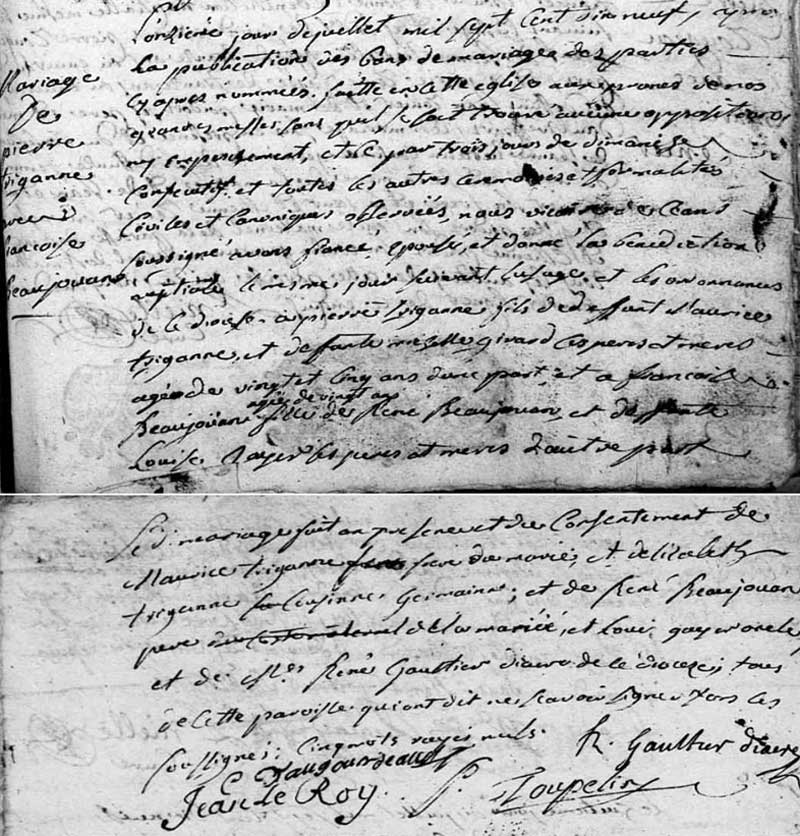 Mariage
De
pierre
triganne
avec
francoise
Beaujouan
l'onzieme jour de juellet mil sept cent dix neuf, apres
la publication des bans de mariages des parties
cy apres nommées faitte en cette eglise aux prones de nos
grandes messes sans qu'il se soit trouvé aucune opposition
ny empeschement, et ce par trois jours de dimanche
consecutifs et toutes les autres ceremonies et formalités
civiles et canoniques observées, nous
soussigné avons fiancé, epousé, et donné la benediction
nuptiale le mesme jour suivant l'usage et les ordonnances
de ce diocese a pierre triganne fils de deffunt Maurice
triganne, et deffante Girard ses peres et meres
agé de vingt et cinq ans d'une part et a francoise
agée de vingt ans
Beaujouan fille de René Beaujouan, et deffante
Louise Gayer ses peres et meres d'autre part
Le d. mariage fait en presence et du consentement de
Maurice triganne frere du marié, et d'elizabeth
triganne sa cousinne Germainne, et de René Beaujouan
pere de la mariée, et Loui gayer oncle
et de René Gaultier diacre de ce diocese, tous
de cette paroisse qui ont dit ne scavoir signer fors les
soussignes. Cinq mots rayes nuls.
R. Gaultier diacre
C Daugourdeau
Jean le Roy.